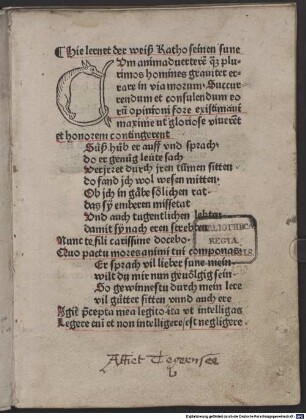 Hie lernet der weiß Katho seinen sune
Cum animaduerterē q̄ʒ plu-
rimos homines grauiter er-
rare in via morum. Succur
rendum et consulendum eo
rū opinioni fore existimaui
maxime ut gloriose viuerēt
et honorem contingerent
Süß hůb er auff vnd sprach
do er genůg leüte sach
Verjrret durch jren tumen sitten
do fand ich wol wesen mitten
Ob ich in gäbe sölichen rat
das sy emberen missetat
Vnd auch tugentlichen
damit sy nach eren strebten
Nunc te fili carissime docebo
Quo pactu mores animi tui componas
Er sprach vil lieber sune mein
wilt du mir nun geuölgig sein
So gewinnestu durch mein lere
vil gůtter sitten vnnd auch ere
Igit̄ p̄cepta mea legito ita vt intelligas
Legere eni et non intelligere est negligere
BIBLIOTHECA
REGIA